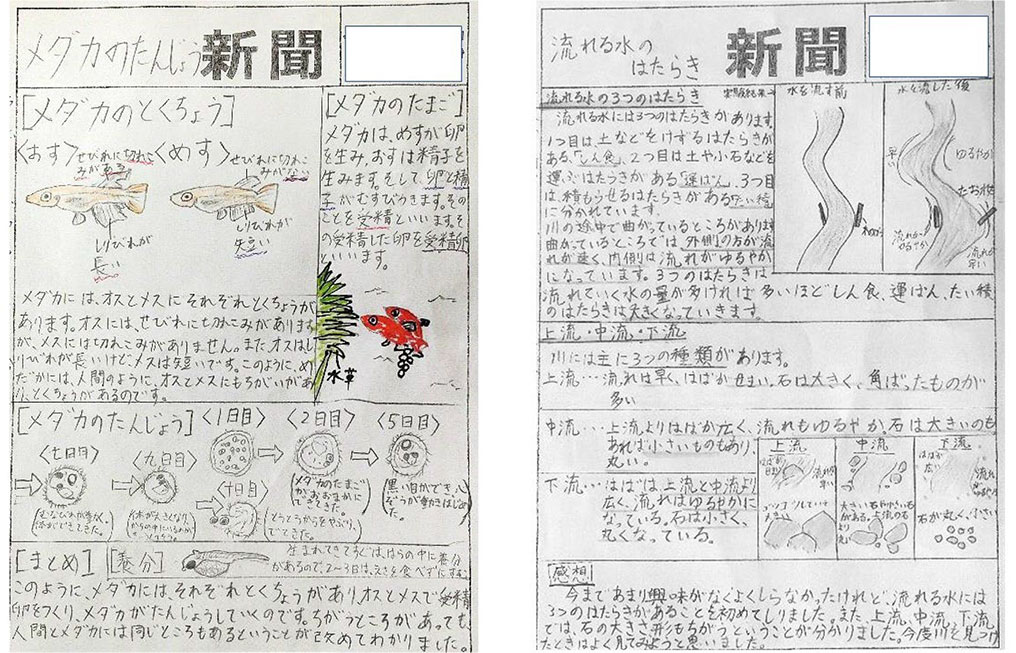 メダカのたんじょう
新聞
[メダカのとくちょう]
<おす>
せびれに切れこ
みがある
<めす>
せびれに切れこ
みがない
しりびれが
長い
しりびれが
短い
メダカには、オスとメスにそれぞれとくちょうが
あります。オスには、せびれに切れこみがあります
が、メスには切れこみがありません。また、オスはし
りびれが長いけどメスは短いです。このように、め
だかには、人間のように、オスとメスにもちがいがあ
り、とくちょうがあるのです。
[メダカのたまご]
メダカは、めすが卵
を生み、おすは精子を
生みます。そして、卵と精
子がむすびつきます。その
ことを受精といいます。そ
の受精した卵を受精卵
といいます。
水草
[メダカのたんじょう]
<1日目>
<2日目>
メダカのたまご
<5日目>
黒い目ができ、心
ぞうが動きはじめ
た。
<七日目>
<九日目>
<十日目>
とうとうからをやぶり、
でてきた。
[まとめ]
[養分]
生まれてきて
があるので、2〜3日は、えさを食べずにすむ。
このように、メダカには、それぞれとくちょうがあり、オスとメスで受精
卵をつくり、メダカがたんじょうしていくのです。ちがうところがあっても、
人間とメダカには同じところもあるということが改めてわかりました。
流れる水の
はたらき
新聞
流れる水の3つのはたらき
流れる水には3つのはたらきがあります。
1つ目は、土などをけずるはたらきが
ある、「しん食」、2つ目は土や小石などを
運ぶはたらきがある「運ぱん」、3つ目
は、積もらせるはたらきがある「たい積」
に分かれています。
川の途中で曲がっているところがあります。
曲がっているところでは、外側の方が流
れが速く、内側は流れがゆるやか
になっています。3つのはたらきは、
流れていく水の量が多ければ多いほどしん食、運ぱん、たい積
のはたらきは大きくなっていきます。
実験結果→
水を流す前
水を流した後
早い
ゆるやか
たおれた
流れが
ゆるやか
流れが
早い
上流・中流・下流
川には主に3つの種類があります。
上流…流れは早く、はばがせまい。石は大きく、角ばったものが
多い
中流…上流よりはばが広く、流れもゆるやか。石は大きいのも
あれば小さいものもあり、
丸い。
下流…はばは上流と中流より
広く、流れはゆるやかに
なっている。石は小さく、
丸くなっている。
上流
中流
下流
はばが
広い
大きい
大きい石や小さい石
がある。上流の石
より
石が丸く、小さい
感想
今まであまり興味がなくよくしらなかったけれど、流れる水には
3つのはたらきがあることを初めてしりました。また、上流、中流、下流
では、石の大きさ、形もちがうということが分かりました。今度川を見つけ
たときはよく見てみようと思いました。